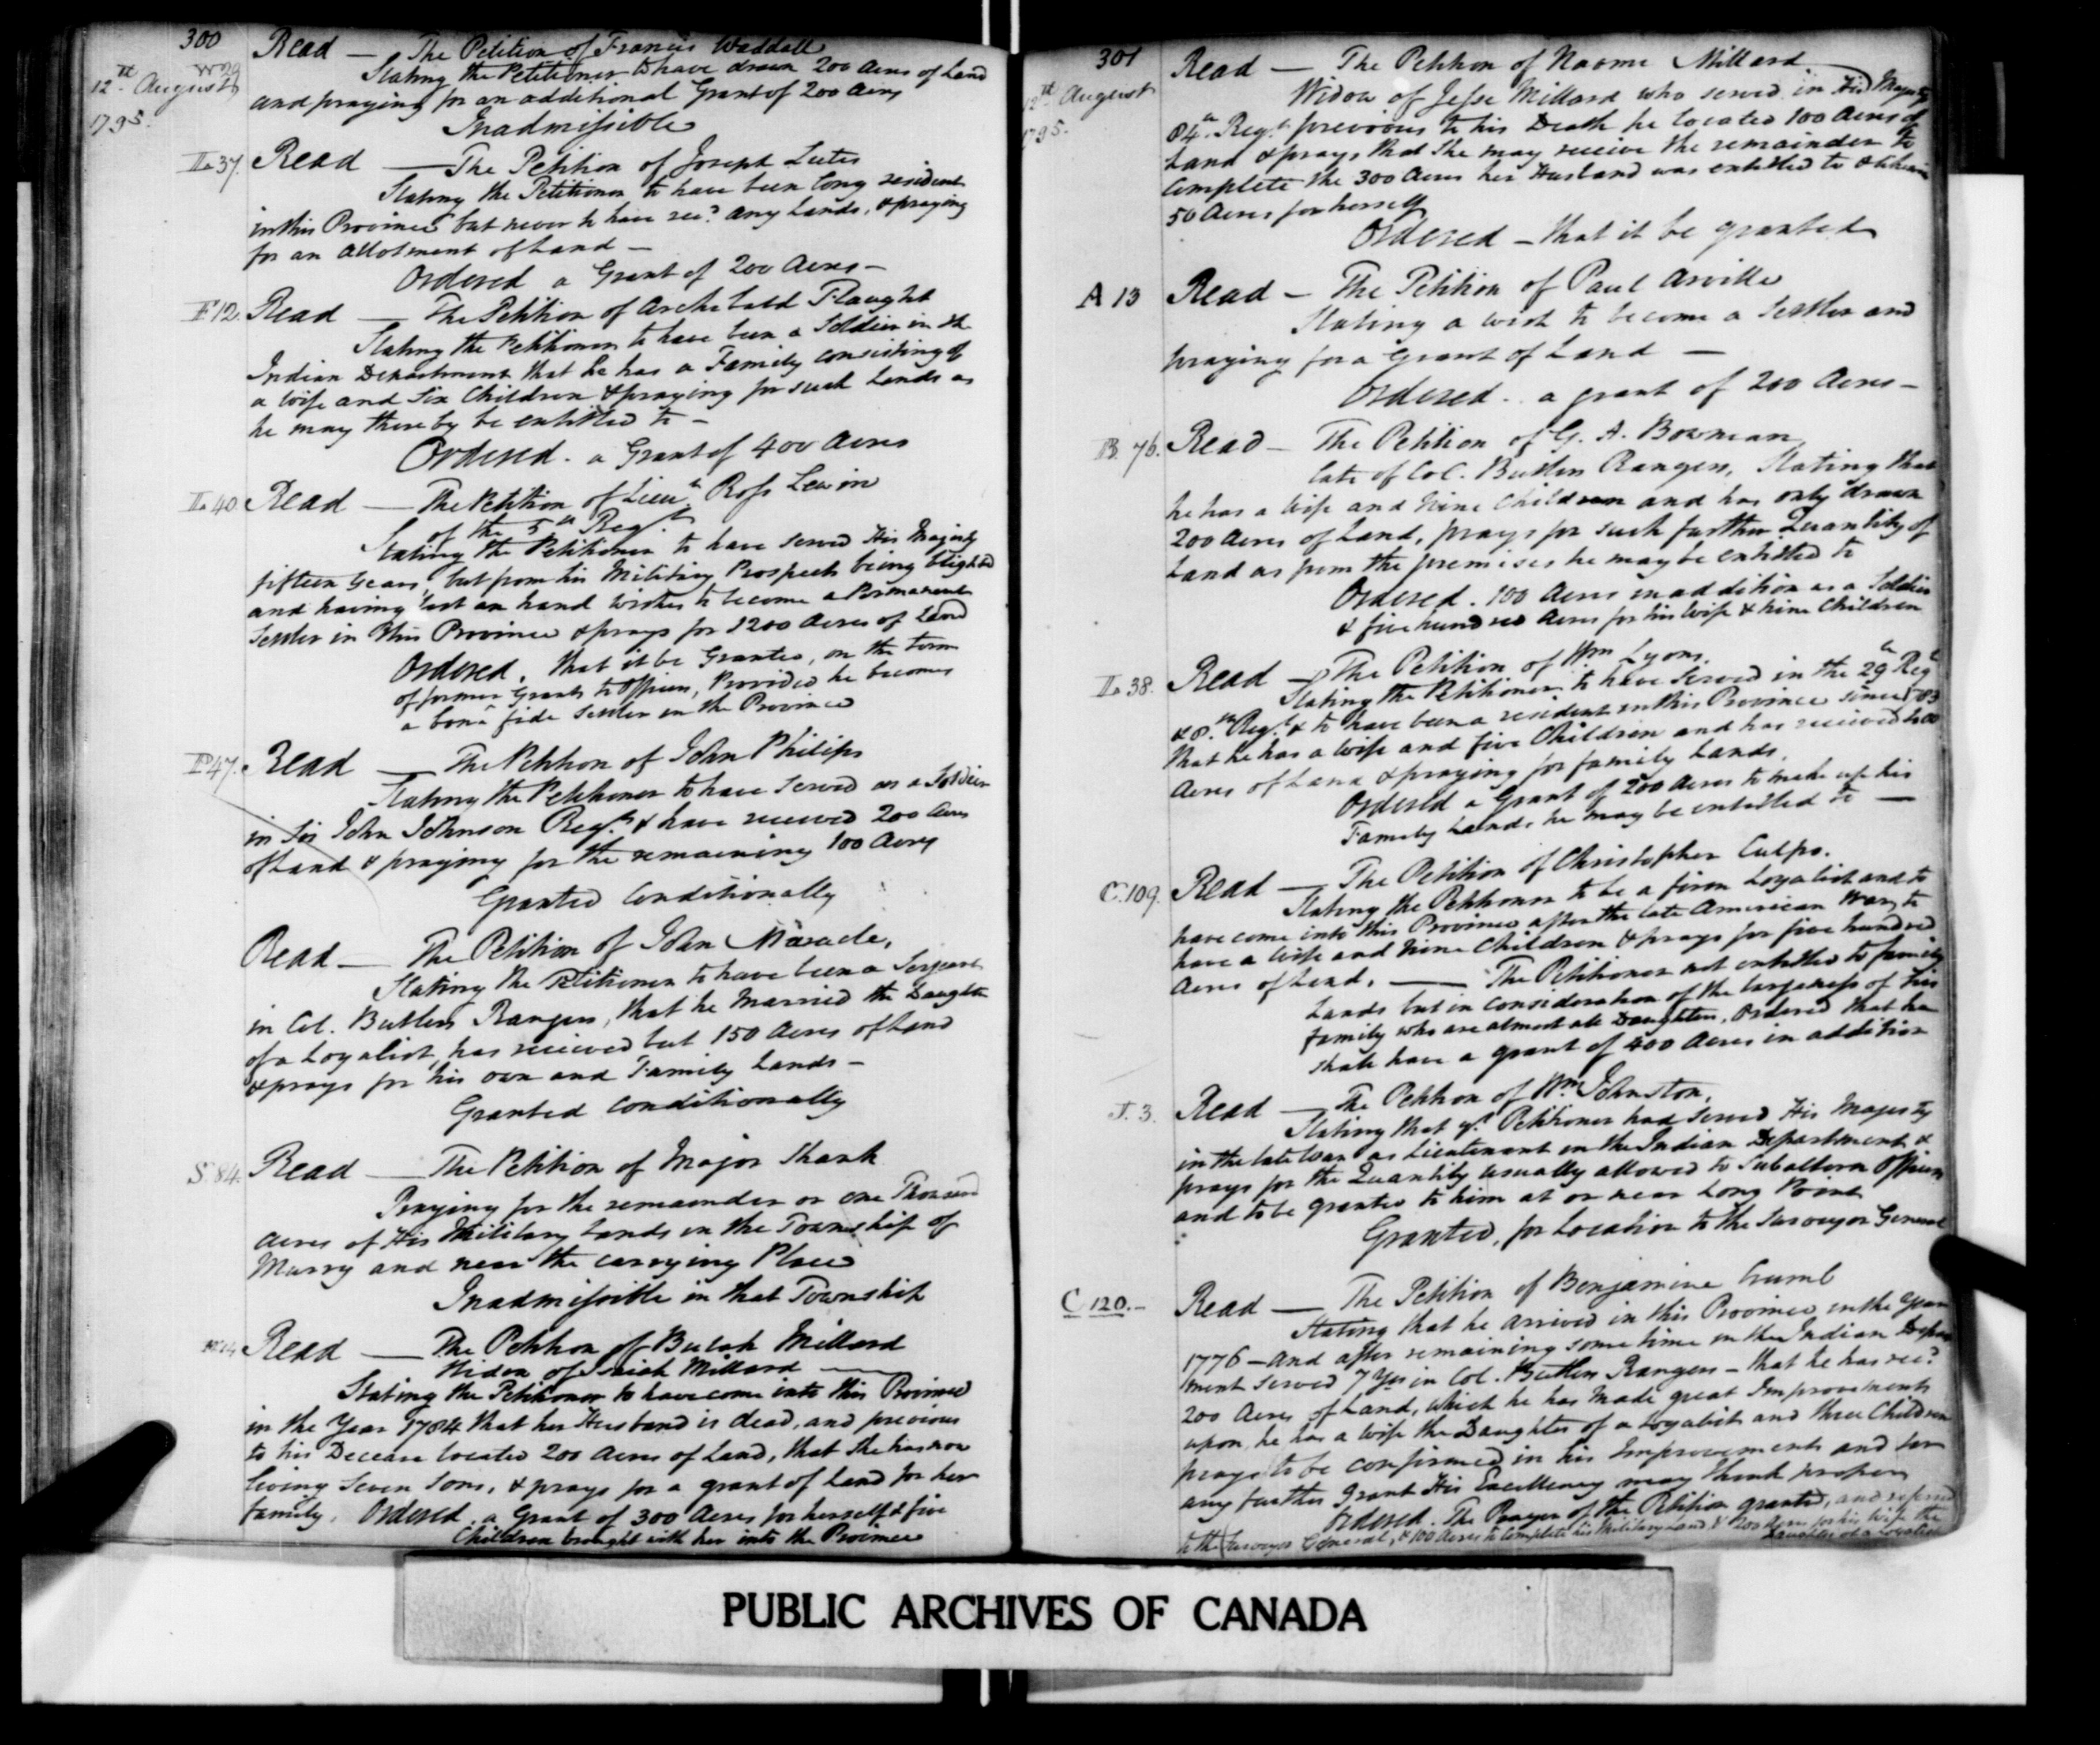 300
12th August
1795.
W 29
Read — The Petition of Francis Waddall
Stating the Petitioner to have drawn 200 Acres of Land
and praying for an additional Grant of 200 Acres
Inadmissible
L 37. Read — The Petition of Joseph Lutes
Stating the Petitioner to have been long resident
in this Province but never to have recd. any Lands, & praying
for an allotment of Land —
Ordered a Grant of 200 Acres —
F 12. Read — The Petition of Archibald Flaught
Stating the Petitioner to have been a Soldier in the
Indian Department that he has a Family consisting of
a Wife and Six Children & praying for such Lands as
he may thereby be entitled to —
Ordered. a Grant of 400 Acres
L 40. Read — The Petition of Lieut. Ross Lewin
of the 5th Regt.
Stating the Petitioner to have served His Majesty
fifteen Years, but from his Military Prospects being blighted
and having lost an hand wishes to become a Permanent
Settler in this Province & prays for 1200 Acres of Land
Ordered, that it be Granted, on the terms
of former Grants to Officers, Provided he becomes
a bonâ fide Settler in the Province
P 47. Read — The Petition of John Philips
Stating the Petitioner to have served as a Soldier
in Sir John Johnson Regt. & have received 200 Acres
of Land & praying for the remaining 100 Acres
Granted Conditionally
Read — The Petition of John Maracle,
Stating the Petitioner to have been a Serjeant
in Col. Butlers Rangers, that he Married the Daughter
of a Loyalist, has received but 150 Acres of Land
& prays for his own and Family Lands —
Granted conditionally
S 84. Read — The Petition of Major Shank
Praying for the remainder or one Thousand
Acres of His Military Lands in the Township of
Murry and near the carrying Place
Inadmissible in that Township
Read — The Petition of Bulah Millard
Widow of Isaiah Millard —
Stating the Petitioner to have come into this Province
in the Year 1784 that her Husband is dead, and previous
to his Decease located 200 Acres of Land, that she has now
living Seven Sons, & prays for a grant of Land for her
family. Ordered. a Grant of 300 Acres for herself & five
Children brought with her into the Province
301
12th August
1795.
Read — The Petition of Naome Millard
Widow of Jesse Millard who served in His Majestys
84th Regt. previous to his Death he located 100 Acres of
Land & prays that she may receive the remainder to
complete the 300 Acres her Husband was entitled to & likewise
50 Acres for herself
Ordered — that it be granted
A 13 Read — The Petition of Paul Arville
Stating a wish to become a Settler and
praying for a Grant of Land —
Ordered. a grant of 200 Acres —
B. 76. Read — The Petition of G. A. Bowman
late of Col. Butlers Rangers, Stating that
he has a Wife and Nine Children and has only drawn
200 Acres of Land, prays for such further Quantity of
Land as from the premises he may be entitled to
Ordered. 100 Acres in addition as a Soldier
& five hundred Acres for his Wife & nine Children
L 38. Read — The Petition of Wm Lyons.
Stating the Petitioner to have served in the 29th Regt
& 8th Regt. & to have been a resident in this Province since 1783
that he has a Wife and five Children and has received
Acres of Land & praying for family Lands.
Ordered a Grant of 200 Acres to make up his
Family Lands he may be entitled to —
C. 109. Read — The Petition of Christopher Culps.
Stating the Petitioner to be a firm Loyalist and to
have come into this Province after the late American War, to
have a Wife and Nine Children & prays for five hundred
Acres of Land. — The Petitioner not entitled to family
Lands but in consideration of the largeness of his
family who are almost all Daughters, Ordered that he
shall have a grant of 400 Acres in addition
J. 3. Read — The Petition of Wm. Johnston,
Stating that yr. Petitioner had served His Majesty
in the late War as Lieutenant in the Indian Department &
prays for the Quantity usually allowed to Subaltern Officers
and to be granted to him at or near Long Point
Granted, for Location to the Surveyor General
C 120. — Read — The Petition of Benjamine Crumb
Stating that he arrived in this Province in the Year
1776 — and after remaining some time in the Indian Depart
ment served 7 Yrs in Col. Butlers Rangers — that he has recd.
200 Acres of Land, which he has made great Improvements
upon, he has a Wife the Daughter of a Loyalist and three Children
prays to be confirmed in his Improvements and for
any further Grant His Excellency may think proper
Ordered. The Prayer of the Petition granted, and referred
to the Surveyor General, & 100 Acres to complete his Military Land & 200 Acres for his Wife the
Daughter of a Loyalist
PUBLIC ARCHIVES OF CANADA